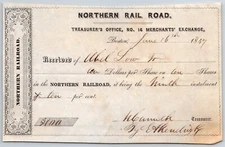 NORTHERN RAIL ROAD.
TREASURER'S OFFICE, NO. 14 MERCHANTS' EXCHANGE,
Boston, June 16th 1847
RECEIVED of Abel Low Jr
ten Dollars per Share on ten Shares
in the NORTHERN RAILROAD, it being the Ninth instalment
of ten per cent.
$100
NORTHERN RAILROAD.